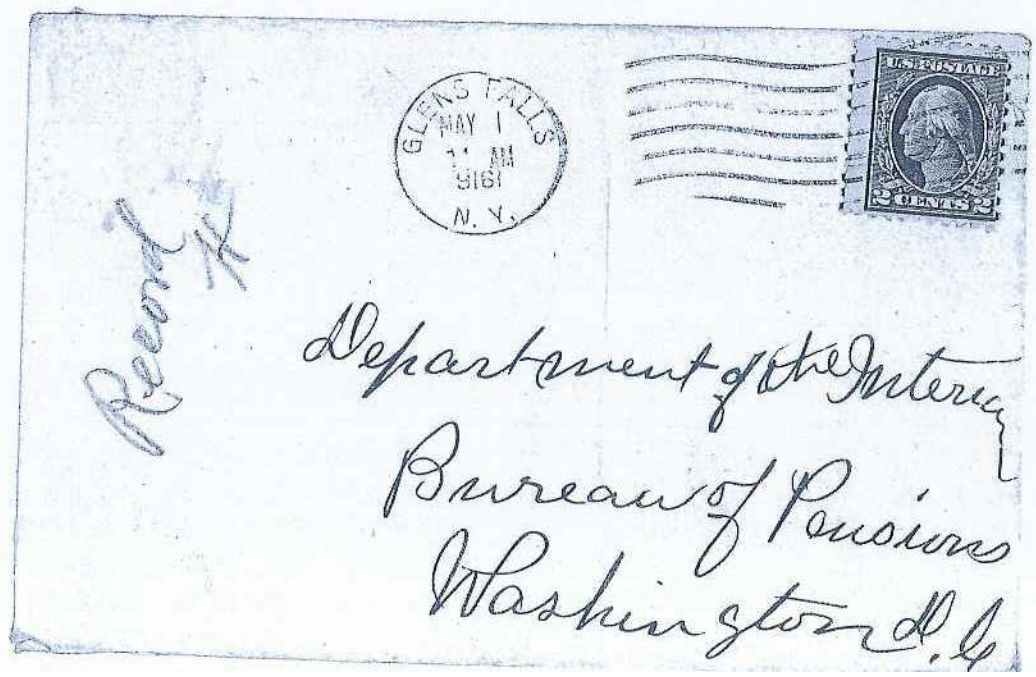 GLENS FALLS
MAY 1
11 AM
9161
N. Y.
U.S. POSTAGE
2 CENTS 2
Record
Department of the Interior
Bureau of Pensions
Washington D. C